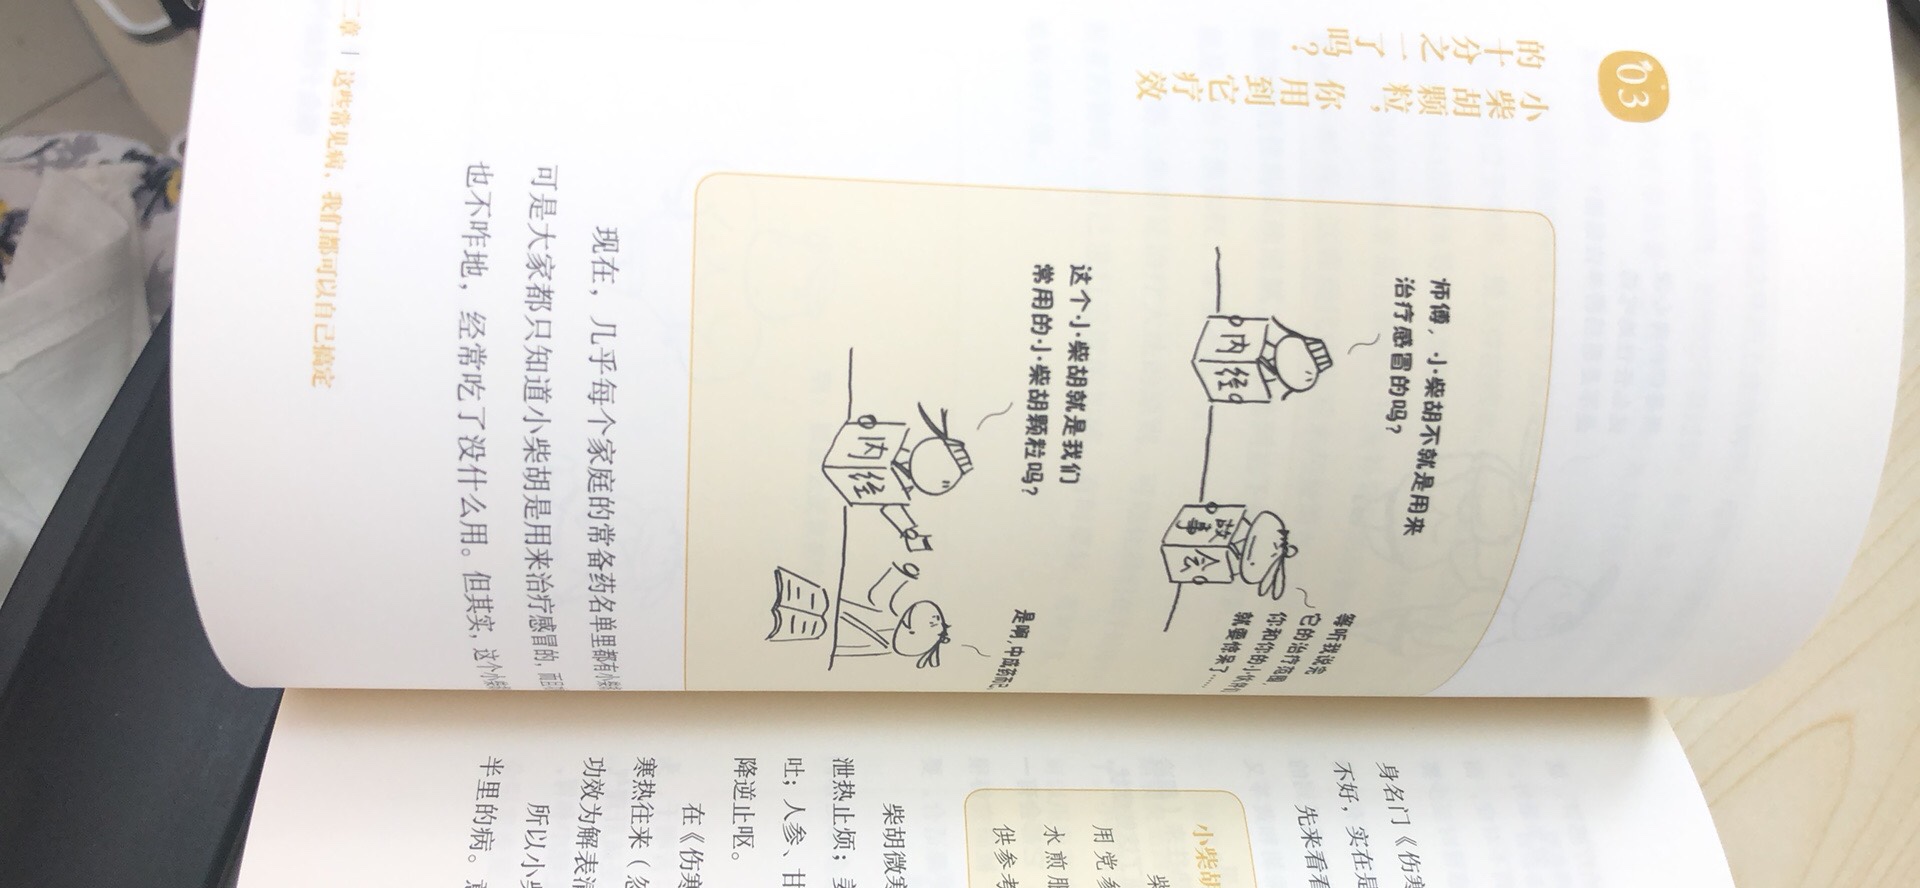 03
小柴胡颗粒，你用到它疗效
的十分之一了吗？
师傅，小柴胡不就是用来
治疗感冒的吗？
等听我说完
它的治疗范围，
你和你的小伙伴们
就要惊呆了……
内经
故事会
这个小柴胡就是我们
常用的小柴胡颗粒吗？
是啊，中成药而已
内经
现在，几乎每个家庭的常备药名单里都有小柴
可是大家都只知道小柴胡是用来治疗感冒的，而且
也不咋地，经常吃了没什么用。但其实，这个小柴
二章 | 这些常见病，我们都可以自己搞定
身名门《伤寒
不好，实在是
先来看看
小柴胡
柴
用党参
水煎服
供参考
柴胡微寒
泄热止烦；
吐；人参、甘
降逆止呕。
在《伤寒
寒热往来（忽
功效为解表清
所以小柴
半里的病。